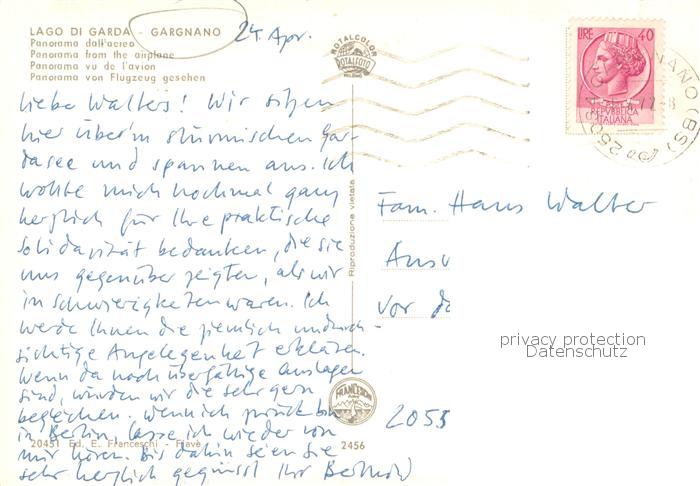 LAGO DI GARDA - GARGNANO 24. Apr.
Panorama dall'aereo
Panorama from the airplane
Panorama vu de l'avion
Panorama von Flugzeug gesehen
Liebe Walters! Wir sitzen
hier über'm stürmischen Gar-
dasee und spannen aus. Ich
wollte mich nochmal ganz
herzlich für Ihre praktische
Solidarität bedanken, die sie
uns gegenüber zeigten, als wir
in Schwierigkeiten waren. Ich
werde Ihnen die ziemlich undurch-
sichtige Angelegenheit erklären.
Wenn da noch überfällige Auslagen
sind, würden wir die sehr gern
begleichen. Wenn ich zurück bin
in Berlin, lasse ich wieder von
mir hören. Bis dahin seien Sie
sehr herzlich gegrüsst Ihr
20451 Ed. E. Franceschi - Fiavè
2456
ROTALCOLOR
ROTALFOTO
MILANO
Riproduzione vietata
FRANCESCHI
LIRE 40
REPVBBLICA
ITALIANA
NANO (BS)
Fam. Hans Walter
Ans
vor d
2055
privacy protection
Datenschutz